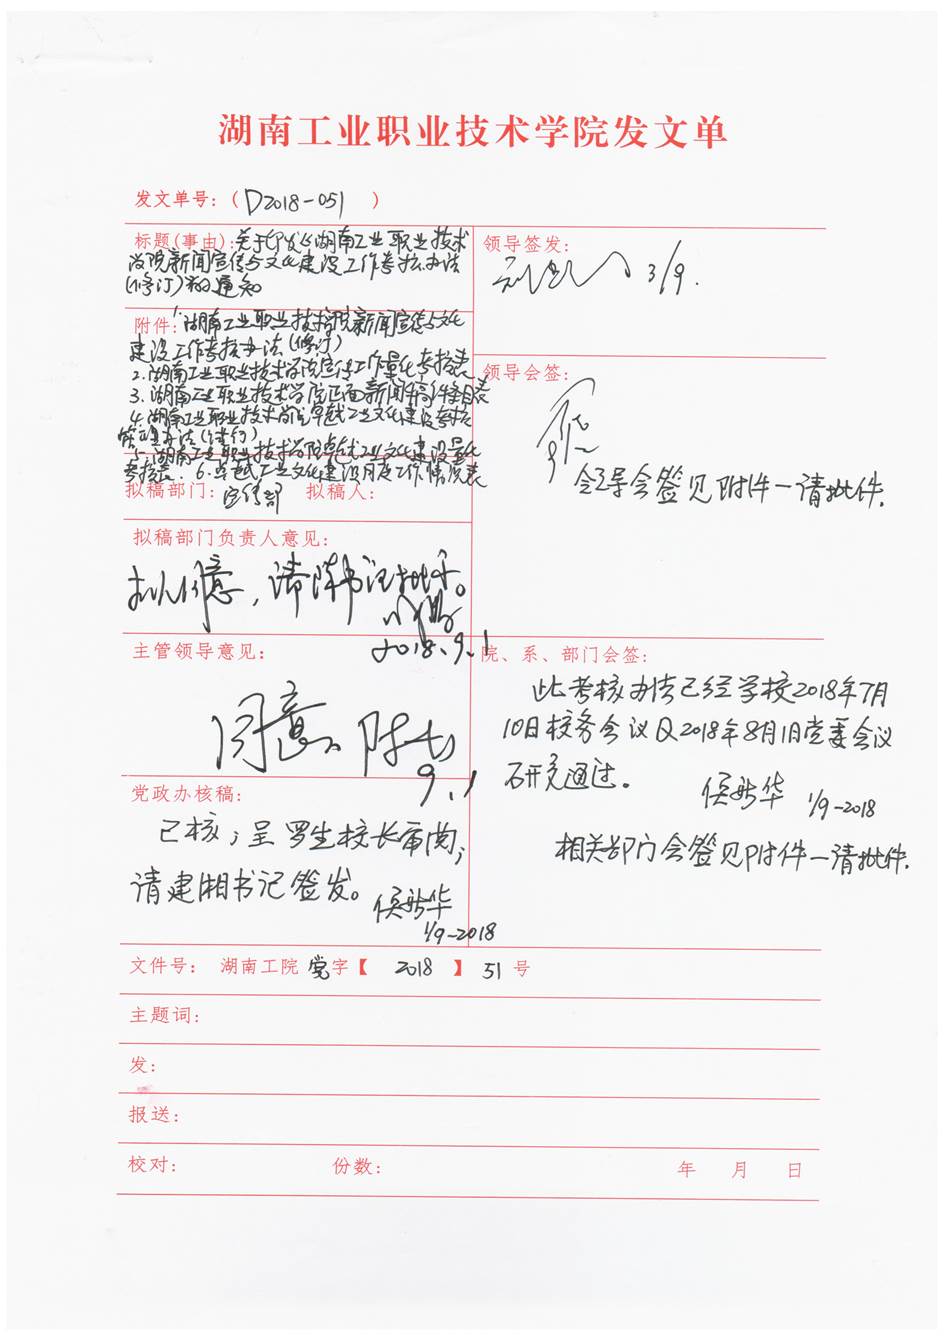 湖南工业职业技术学院发文单
发文单号：（D2018-051）
标题(事由)：关于印发《湖南工业职业技术
学院新闻宣传与文化建设工作考核办法
(修订)》的通知
领导签发：
3/9.
附件：1.湖南工业职业技术学院新闻宣传与文化
建设工作考核办法(修订)
2.湖南工业职业技术学院宣传工作量化考核表
3.湖南工业职业技术学院正面新闻稿件条目表
4.湖南工业职业技术学院卓越工业文化建设考核
管理办法(试行)
5.湖南工业职业技术学院卓越工业文化建设量化
考核表. 6.卓越工业文化建设月度工作情况表
领导会签：
领导会签见附件一请批件.
拟稿部门：宣传部 拟稿人：
拟稿部门负责人意见：
拟同意，请陈书记批示。
2018.9.1
主管领导意见：
同意。陈
9.1
院、系、部门会签：
此考核办法已经学校2018年7月
10日校务会议及2018年8月1日党委会议
研究通过。
侯 华 1/9-2018
相关部门会签见附件一请批件.
党政办核稿：
已核；呈罗生校长审阅；
请建湘书记签发。
侯 华
1/9-2018
文件号： 湖南工院 党字【 2018 】 51 号
主题词：
发：
报送：
校对： 份数： 年 月 日